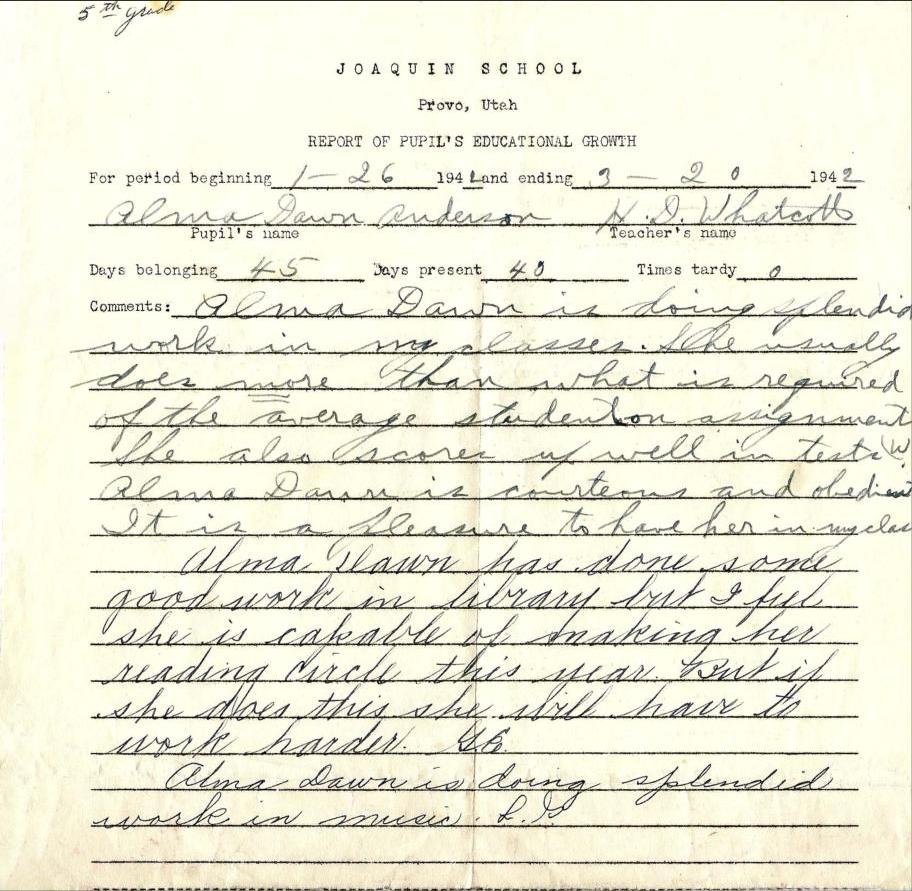 5th grade
JOAQUIN SCHOOL
Provo, Utah
REPORT OF PUPIL'S EDUCATIONAL GROWTH
For period beginning 1-26 1942 and ending 3-20 1942
Alma Dawn Anderson H. D. Whatcott
Pupil's name Teacher's name
Days belonging 45 Days present 40 Times tardy 0
Comments: Alma Dawn is doing splendid
work in my classes. She usually
does more than what is required
of the average student on assignment
She also scores up well in tests (W
Alma Dawn is courteous and obedient
It is a pleasure to have her in my class
Alma Dawn has done some
good work in library but I feel
she is capable of making her
reading circle this year. But if
she does this she will have to
work harder.
Alma Dawn is doing splendid
work in music.